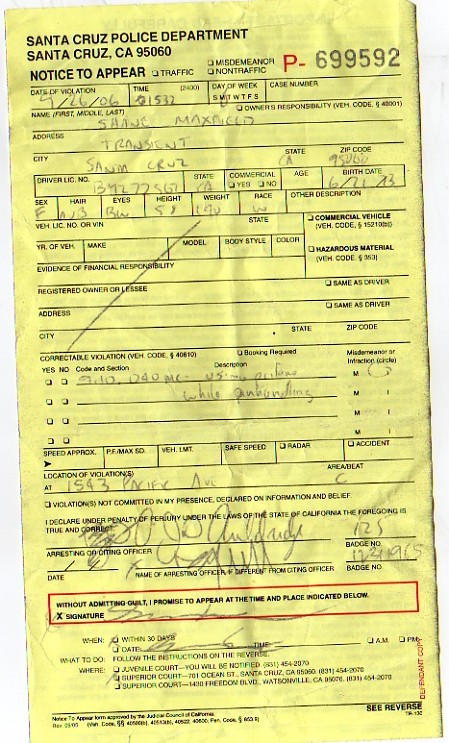 SANTA CRUZ POLICE DEPARTMENT
SANTA CRUZ, CA 95060
NOTICE TO APPEAR ☐ TRAFFIC ☐ MISDEMEANOR ☐ NONTRAFFIC P- 699592
DATE OF VIOLATION TIME (2400) DAY OF WEEK CASE NUMBER
9/26/06 1532 S M T W T F S
NAME (FIRST, MIDDLE, LAST) ☐ OWNER'S RESPONSIBILITY (VEH. CODE, § 40001)
SHANE MAXFIELD
ADDRESS
TRANSIENT
CITY STATE ZIP CODE
SANTA CRUZ CA 95060
DRIVER LIC. NO. STATE COMMERCIAL AGE BIRTH DATE
☐ YES ☐ NO
SEX HAIR EYES HEIGHT WEIGHT RACE OTHER DESCRIPTION
F 140 W
VEH. LIC. NO. OR VIN STATE ☐ COMMERCIAL VEHICLE
(VEH. CODE, § 15210(b))
YR. OF VEH. MAKE MODEL BODY STYLE COLOR ☐ HAZARDOUS MATERIAL
(VEH. CODE, § 353)
EVIDENCE OF FINANCIAL RESPONSIBILITY
REGISTERED OWNER OR LESSEE ☐ SAME AS DRIVER
ADDRESS ☐ SAME AS DRIVER
CITY STATE ZIP CODE
CORRECTABLE VIOLATION (VEH. CODE, § 40610) ☐ Booking Required Misdemeanor or
YES NO Code and Section Description Infraction (circle)
☐ ☐ 9.10.040 MC - M
☐ ☐ while panhandling M I
☐ ☐ M I
☐ ☐ M I
SPEED APPROX. P.F./MAX SD. VEH. LMT. SAFE SPEED ☐ RADAR ☐ ACCIDENT
LOCATION OF VIOLATION(S) AREA/BEAT
AT 1543 PACIFIC AVE C
☐ VIOLATION(S) NOT COMMITTED IN MY PRESENCE, DECLARED ON INFORMATION AND BELIEF.
I DECLARE UNDER PENALTY OF PERJURY UNDER THE LAWS OF THE STATE OF CALIFORNIA THE FOREGOING IS
TRUE AND CORRECT. 125
ARRESTING OR CITING OFFICER BADGE NO.
DATE NAME OF ARRESTING OFFICER, IF DIFFERENT FROM CITING OFFICER BADGE NO.
WITHOUT ADMITTING GUILT, I PROMISE TO APPEAR AT THE TIME AND PLACE INDICATED BELOW.
X SIGNATURE
WHEN: ☐ WITHIN 30 DAYS
☐ DATE: TIME ☐ A.M. ☐ PM
WHAT TO DO: FOLLOW THE INSTRUCTIONS ON THE REVERSE.
WHERE: ☐ JUVENILE COURT—YOU WILL BE NOTIFIED. (831) 454-2070
☐ SUPERIOR COURT—701 OCEAN ST., SANTA CRUZ, CA 95060. (831) 454-2070
☐ SUPERIOR COURT—1430 FREEDOM BLVD., WATSONVILLE, CA 95076. (831) 454-2070
DEFENDANT COPY
SEE REVERSE
Notice To Appear form approved by the Judicial Council of California
TR-130